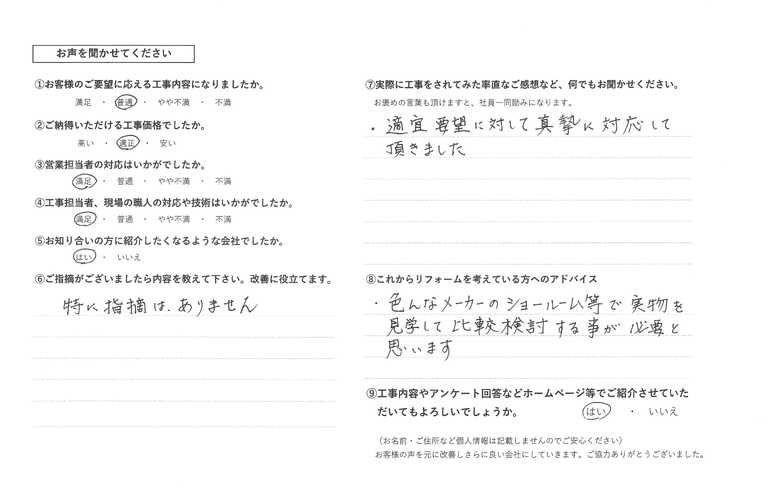 お声を聞かせてください
①お客様のご要望に応える工事内容になりましたか。
満足 ・ 普通 ・ やや不満 ・ 不満
②ご納得いただける工事価格でしたか。
高い ・ 適正 ・ 安い
③営業担当者の対応はいかがでしたか。
満足 ・ 普通 ・ やや不満 ・ 不満
④工事担当者、現場の職人の対応や技術はいかがでしたか。
満足 ・ 普通 ・ やや不満 ・ 不満
⑤お知り合いの方に紹介したくなるような会社でしたか。
はい ・ いいえ
⑥ご指摘がございましたら内容を教えて下さい。改善に役立てます。
特に指摘は、ありません
⑦実際に工事をされてみた率直なご感想など、何でもお聞かせください。
お褒めの言葉も頂けますと、社員一同励みになります。
・適宜要望に対して真摯に対応して
頂きました
⑧これからリフォームを考えている方へのアドバイス
・色んなメーカーのショールーム等で実物を
見学して比較検討する事が必要と
思います
⑨工事内容やアンケート回答などホームページ等でご紹介させていた
だいてもよろしいでしょうか。 はい ・ いいえ
（お名前・ご住所など個人情報は記載しませんのでご安心ください）
お客様の声を元に改善しさらに良い会社にしていきます。ご協力ありがとうございました。